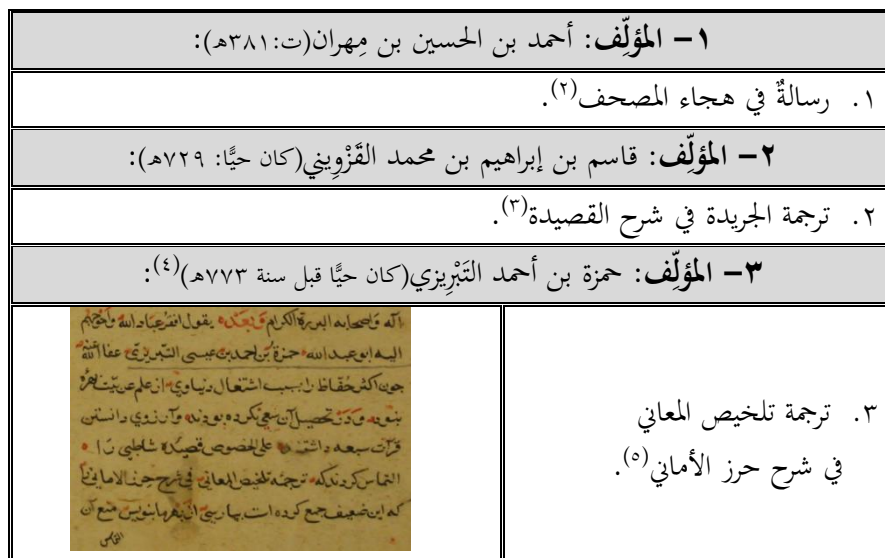 ١– المؤلِّف: أحمد بن الحسين بن مِهران(ت:٣٨١هـ):
١. رسالةٌ في هجاء المصحف(٢).
٢– المؤلِّف: قاسم بن إبراهيم بن محمد القَزْوِيني(كان حيًّا: ٧٢٩هـ):
٢. ترجمة الجريدة في شرح القصيدة(٣).
٣– المؤلِّف: حمزة بن أحمد التَبْرِيزي(كان حيًّا قبل سنة ٧٧٣هـ)(٤):
٣. ترجمة تلخيص المعاني
في شرح حرز الأماني(٥).
اله واصحابه البررة الكرام وبعد يقول افقر عباد الله واحوجهم
اليه ابو عبد الله حمزة بن احمد بن عيسى التبريزي عفا الله عنه
جون اكثر حفاظ را بسبب اشتغال دنياوي از علم عربيت بهره
نبود ودر تحصيل آن سعي نكرده بودند وآرزوي دانستن
قرآت سبعه داشتند على الخصوص قصيده شاطبي را
التماس كردند كه ترجمه تلخيص المعاني في شرح حرز الاماني را
كه اين ضعيف جمع كرده است بپارسي بنويس منع آن